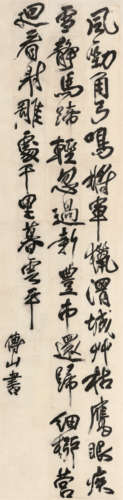 風勁角弓鳴將軍獵渭城艸枯鷹眼疾
雪靜馬蹄輕忽過新豐市還歸細柳營
迴看射雕處千里暮雲平
傅山書